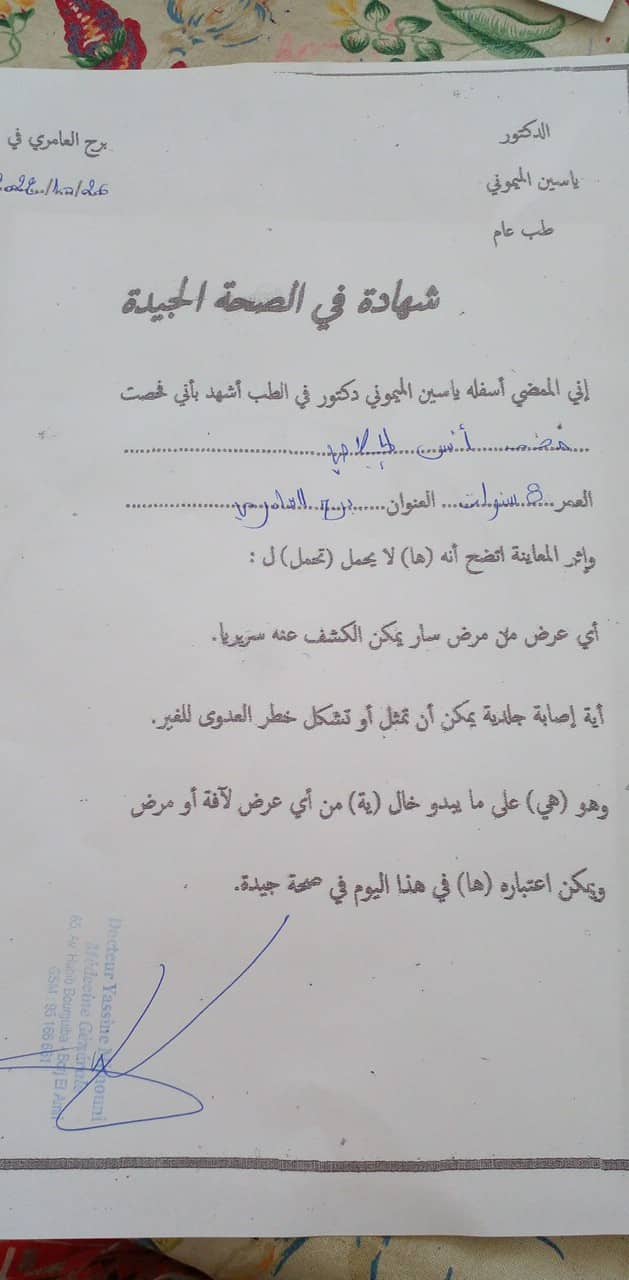 الدكتور
برج العامري في
ياسين الميموني
26/12/202
طب عام
شهادة في الصحة الجيدة
إني الممضي أسفله ياسين الميموني دكتور في الطب أشهد بأني فحصت
محمد أنس
العمر 8 سنوات العنوان برج العامري
وإثر المعاينة اتضح أنه (ها) لا يحمل (تحمل) ل :
أي عرض من مرض سار يمكن الكشف عنه سريريا.
أية إصابة جلدية يمكن أن تمثل أو تشكل خطر العدوى للغير.
وهو (هي) على ما يبدو خال (ية) من أي عرض لآفة أو مرض
ويمكن اعتباره (ها) في هذا اليوم في صحة جيدة.
Docteur Yassine
Médecine Générale
65, Av Habib Bourguiba - Borj El Amri
GSM : 95 166 661